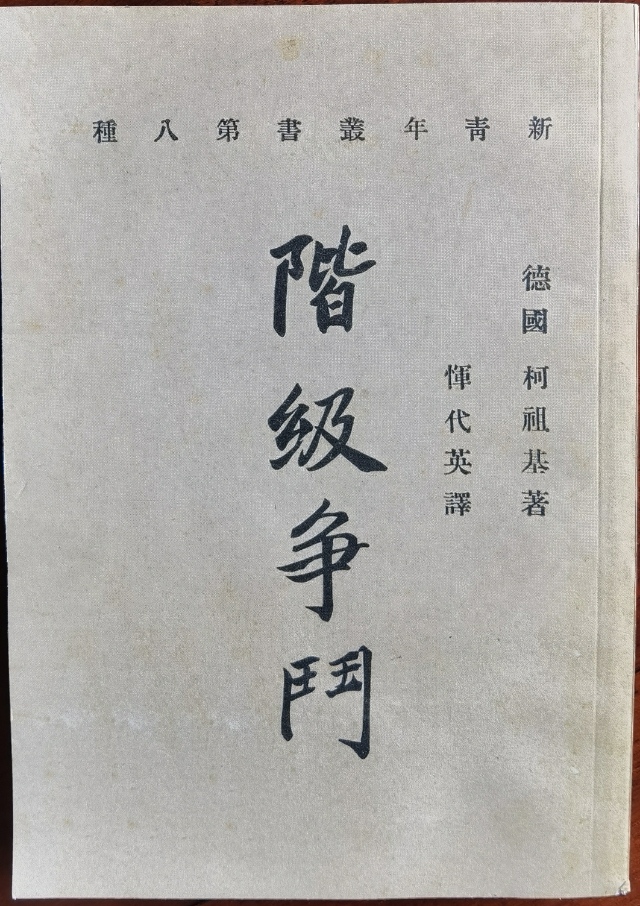 新青年叢書第八種
德國柯祖基著
惲代英譯
階級争鬥